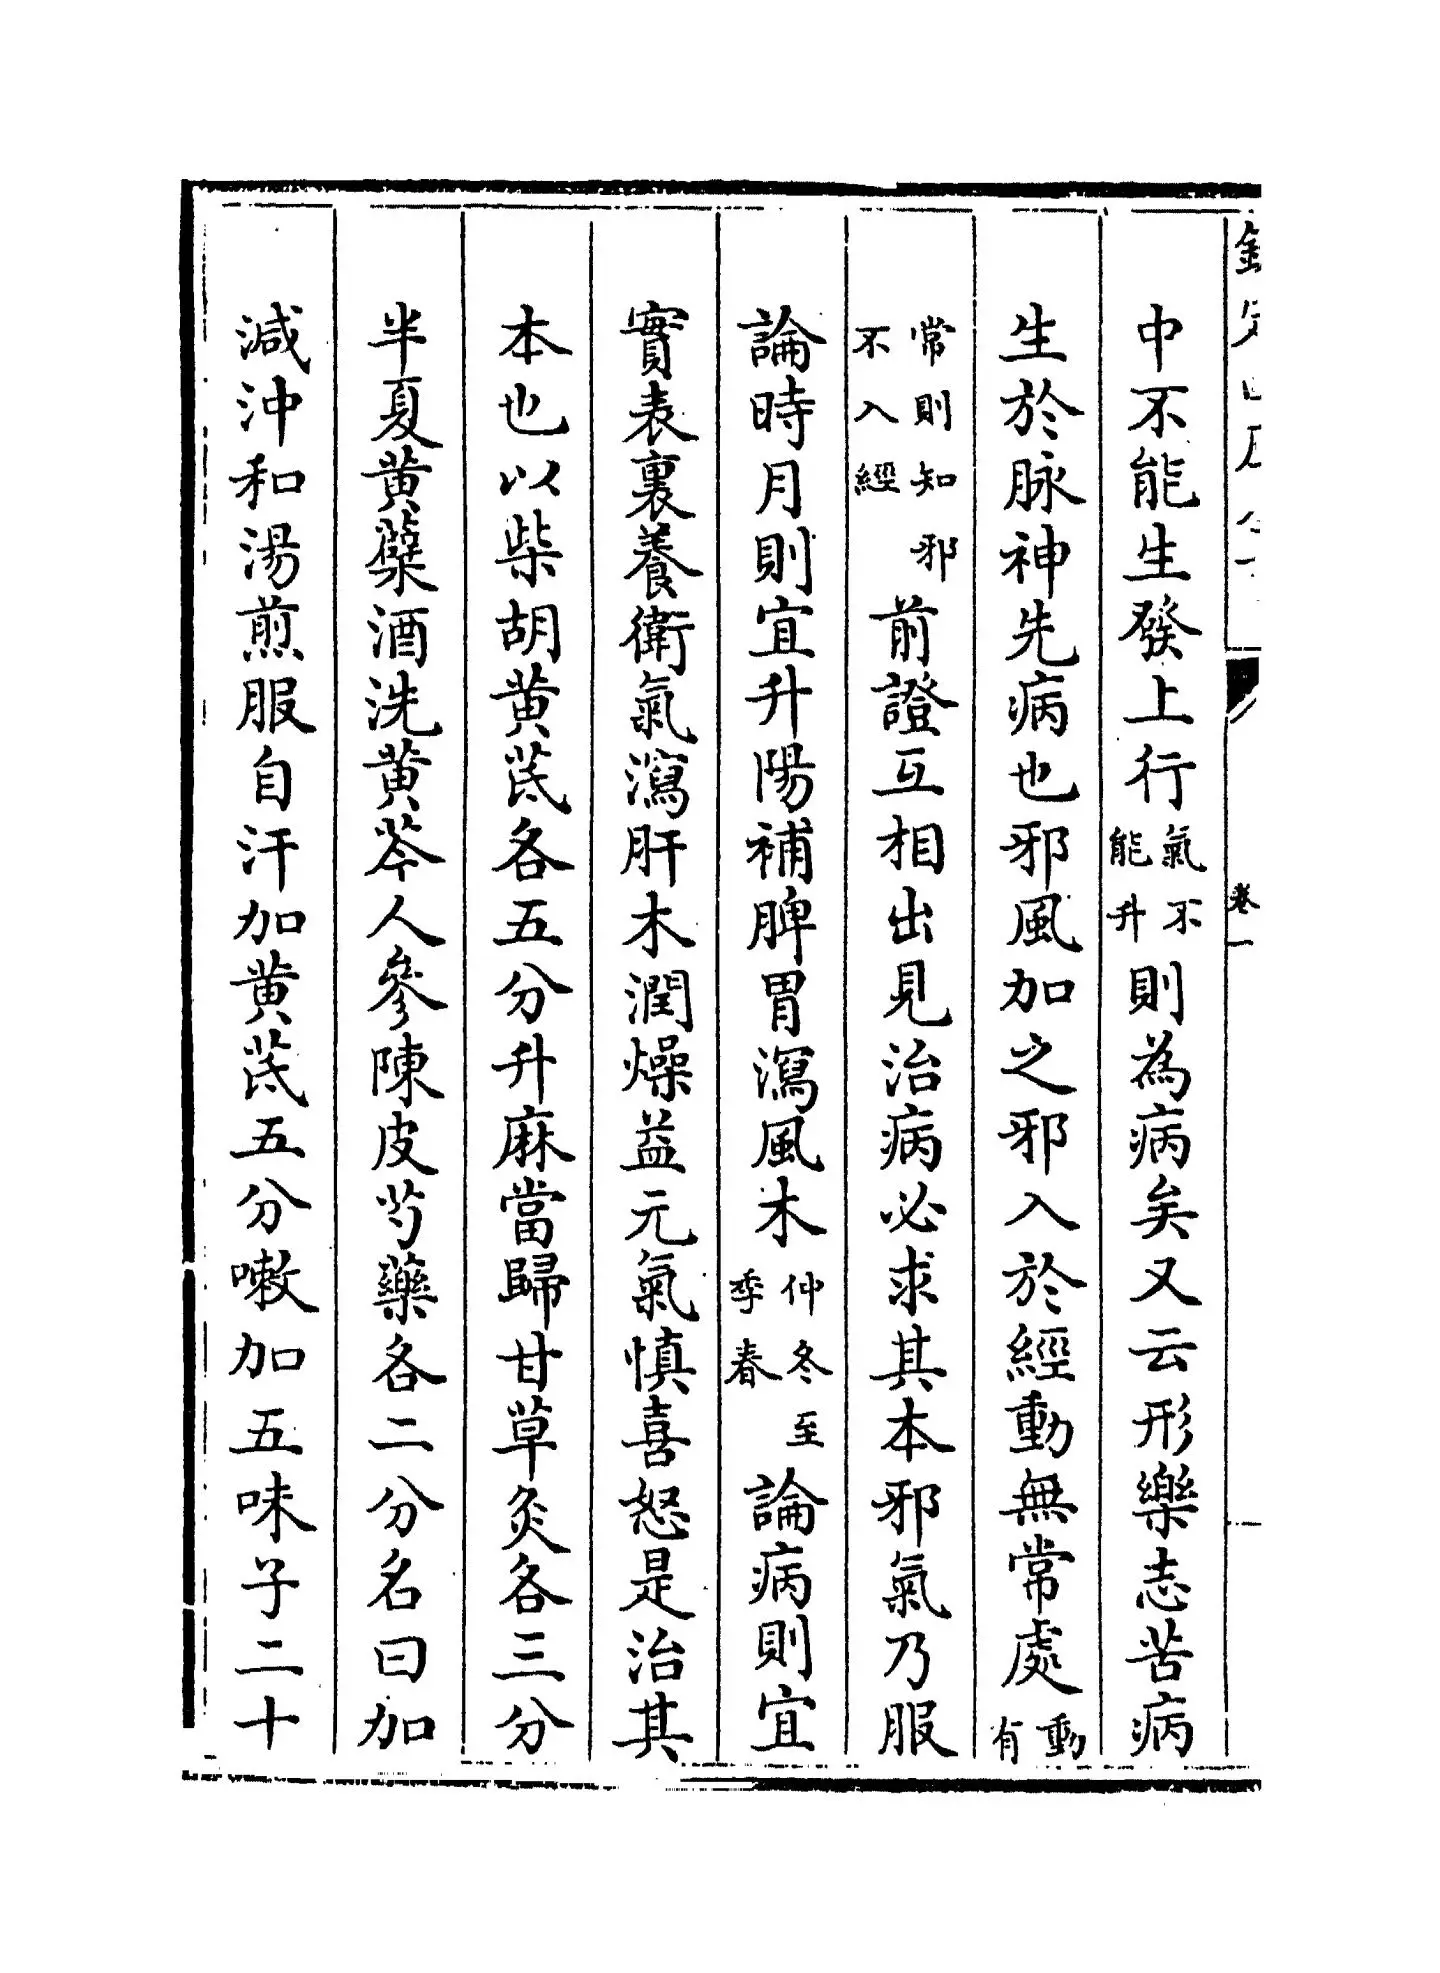 卷一
中不能生發上行氣不能升則為病矣又云形樂志苦病
生於脉神先病也邪風加之邪入於經動無常處動有
常則知邪不入經前證互相出見治病必求其本邪氣乃服
論時月則宜升陽補脾胃瀉風木仲冬至季春論病則宜
實表裏養衛氣瀉肝木潤燥益元氣慎喜怒是治其
本也以柴胡黄芪各五分升麻當歸甘草炙各三分
半夏黄蘗酒洗黄芩人參陳皮芍藥各二分名曰加
減沖和湯煎服自汗加黄芪五分嗽加五味子二十